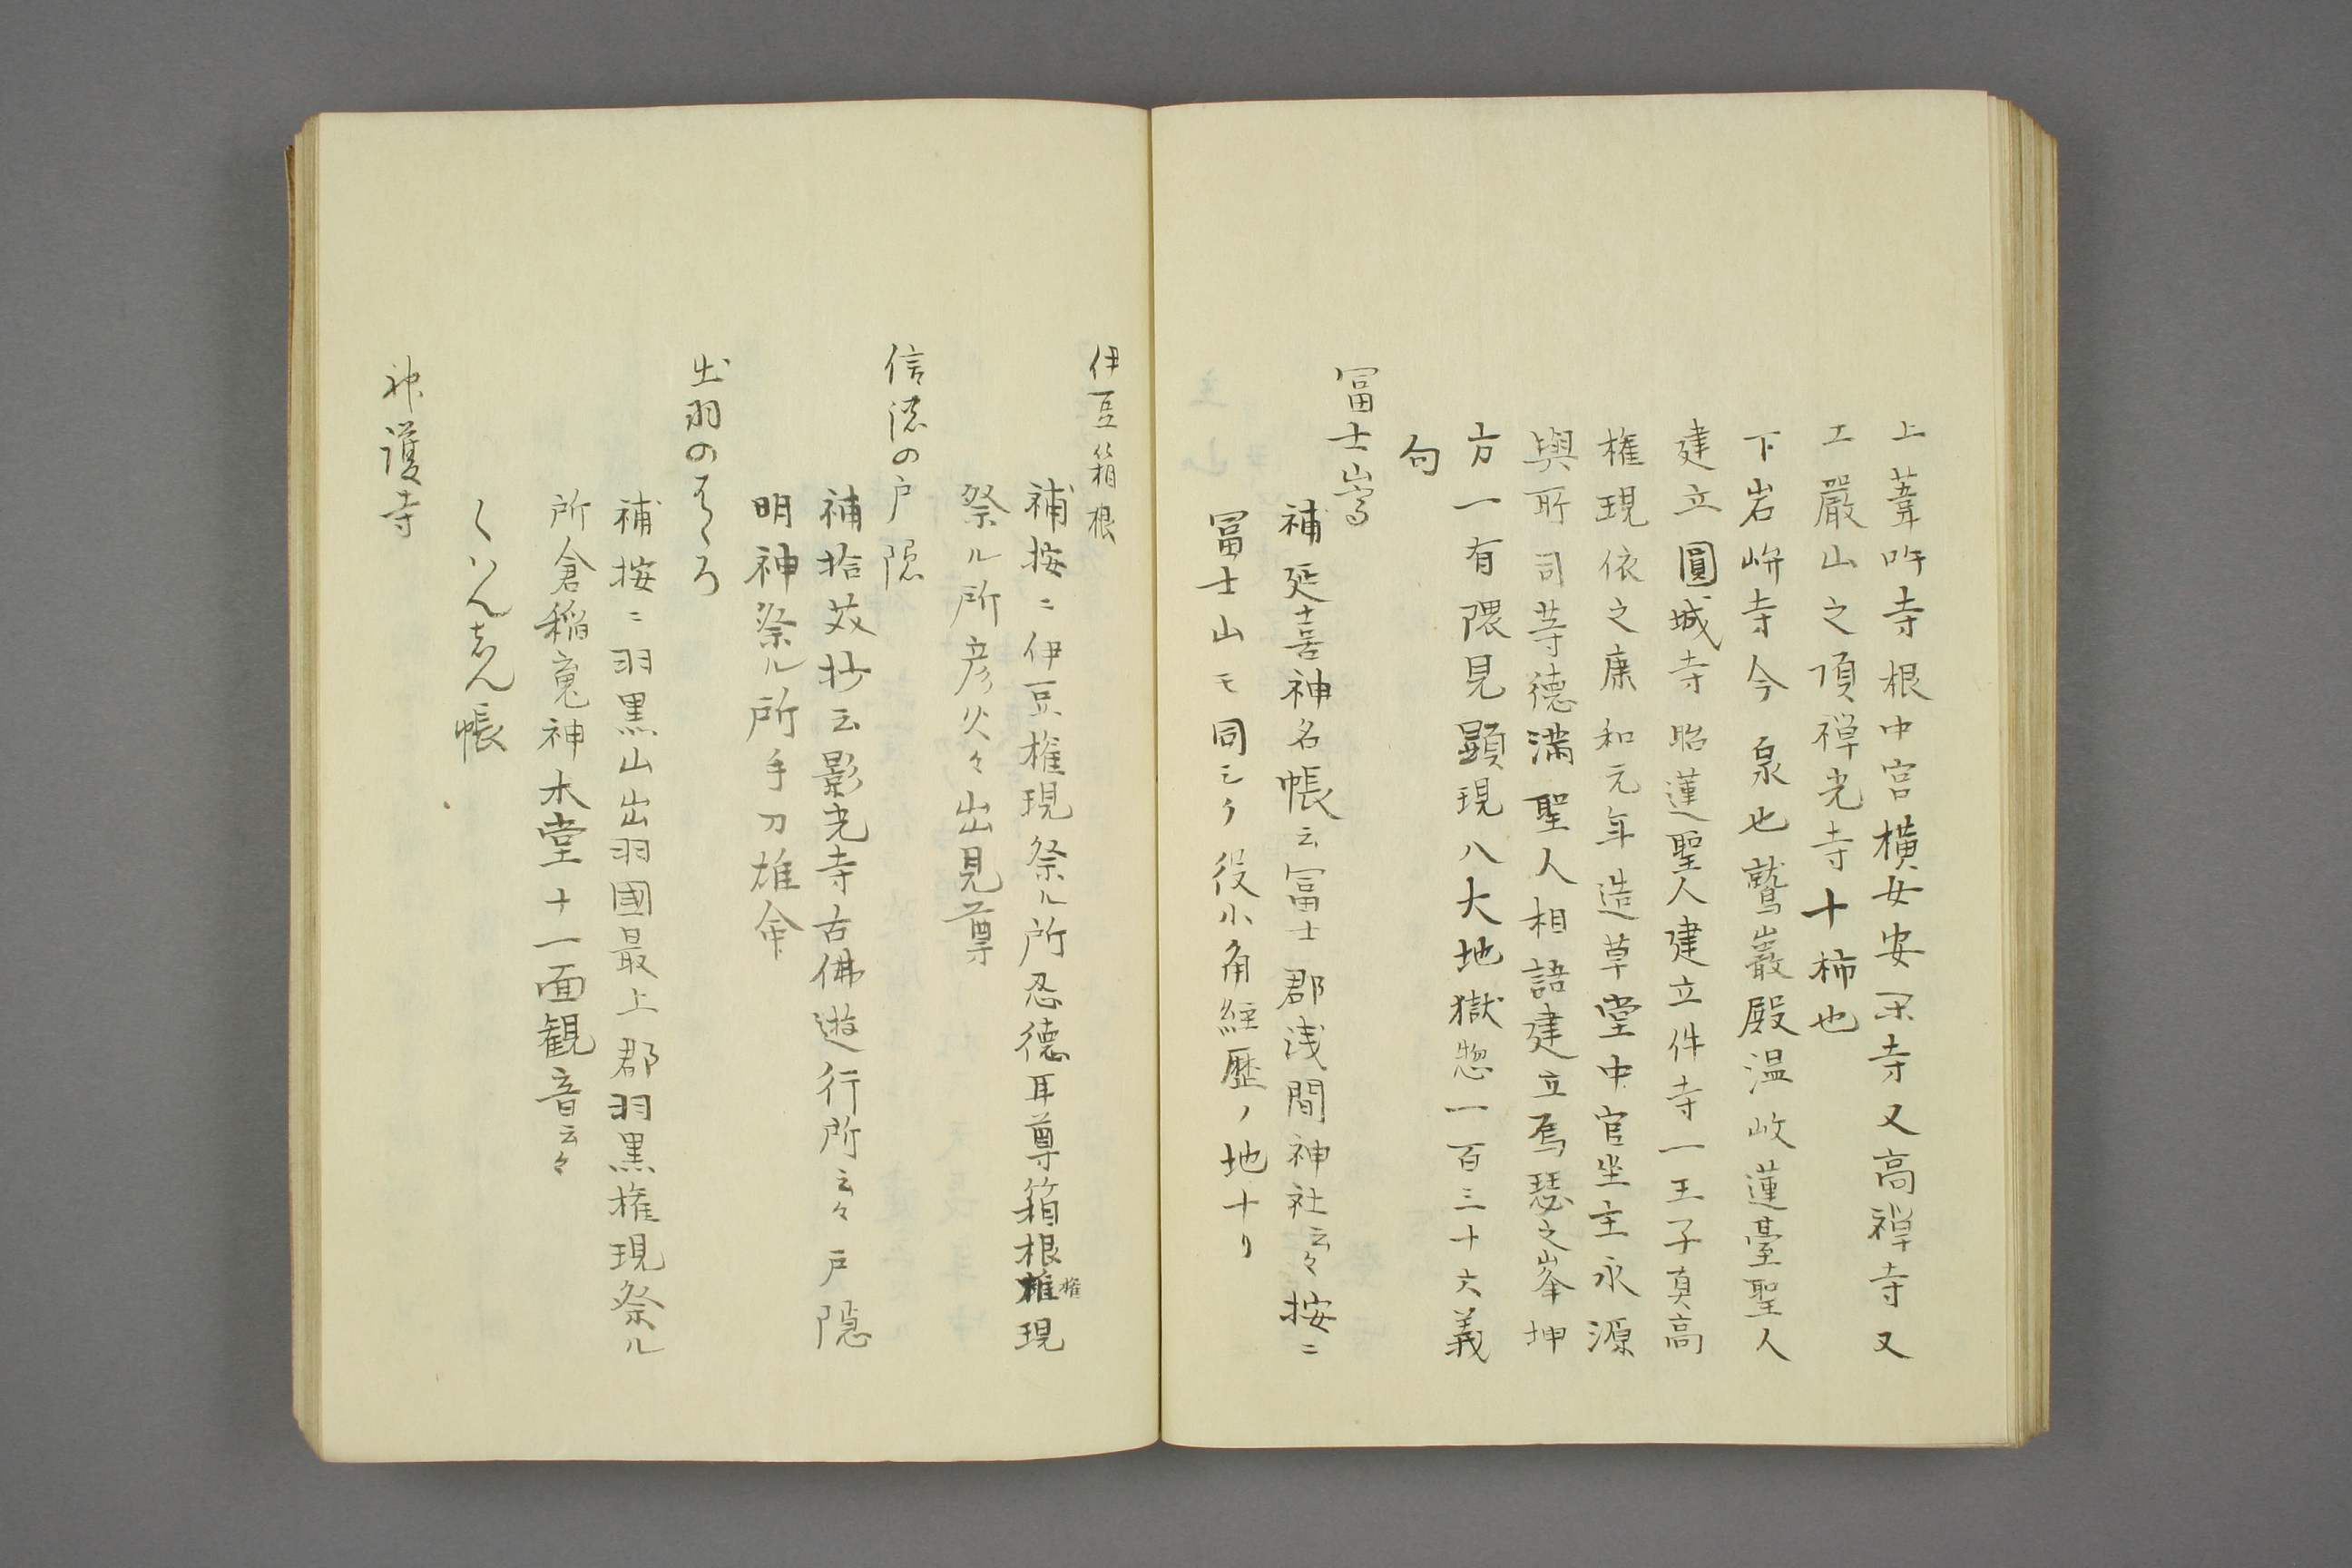 上葦峅寺根中宮横女安閑寺又高禅寺又
工嚴山之頂禅光寺十柿也
下岩峅寺今泉也鷲巖殿温岐蓮臺聖人
建立圓城寺昭蓮聖人建立件寺一王子真高
権現依之康和元年造草堂中宮坐主永源
與所司等徳満聖人相語建立焉瑟之峯坤
方一有隈見顕現八大地獄惣一百三十六義
句
冨士嵩
補延喜神名帳云冨士郡浅間神社云々按ニ
冨士山モ同シク役小角経歴ノ地ナリ
伊豆箱根
補按ニ伊豆権現祭ル所忍德耳尊箱根権現
祭ル所彦火々出見尊
信濃の戸隠
補拾芥抄云影光寺古佛遊行所云々戸隠
明神祭ル所手力雄命
出羽のはくろ
補按ニ羽黒山出羽國最上郡羽黒権現祭ル
所倉稲䰟神木堂十一面観音云々
くわんしん帳
神護寺